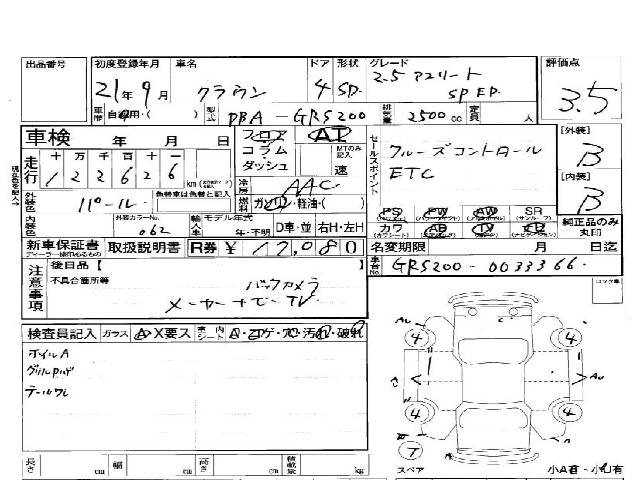 出品番号 初度登録年月 車名 ドア 形状 グレード 評価点
21年9月 クラウン 4 SD. 2.5 アスリート
SP ED. 3.5
車歴 自家用・( ) 型式 DBA-GRS200 排気量 2500cc 定員 人
車検 年 月 日 フロア AT セールスポイント [外装]
コラム MTのみ記入 クルーズコントロール B
走行 十 万 千 百 十 一 ダッシュ 速 ETC
1 2 2 6 2 6 km 冷房 AAC [内装]
外装色 パール 色替車は色替と記入 燃料 ガソリン・軽油・( ) B
PS PW AW SR
内装色 外装カラーNo. 062 輸入車 モデル年式 年・不明 D車・並 右H・左H カワ AB TV 純正品のみ丸印
新車保証書 取扱説明書 R券 ¥ 17,080 名変期限 月 日迄
ディーラー様印のあるもの 車台No. GRS200-0033366
注意事項 後日品〔 〕 ロック車
不具合箇所等 バックカメラ
メーカーナビ・TV
検査員記入 ガラス A・X要ス 車内シート
ホイルA
4 4
4 4
長さ cm 幅 cm 高さ cm 積載量 kg
スペア 小A有・小U有